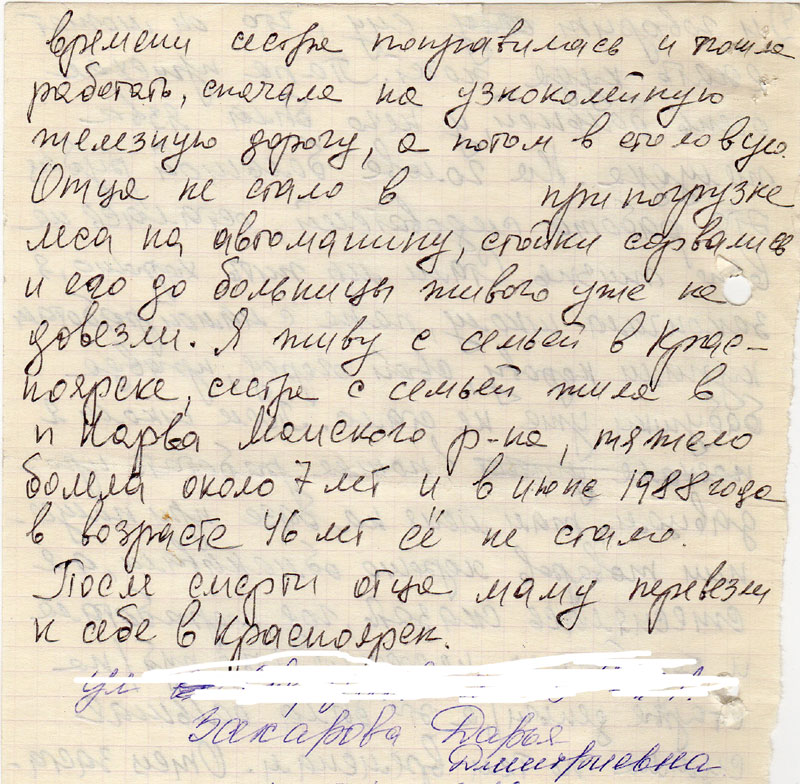 времени сестра поправилась и пошла
работать, сначала на узкоколейную
железную дорогу, а потом в столовую.
Отца не стало в при погрузке
леса на автомашину, стойки сорвались
и его до больницы живого уже не
довезли. Я живу с семьей в Крас-
ноярске, сестра с семьей жила в
п Нарва Манского р-на, тяжело
болела около 7 лет и в июне 1988 года
в возрасте 46 лет её не стало.
После смерти отца маму перевезли
к себе в Красноярск.
ул
Захарова Дарья
Дмитриевна